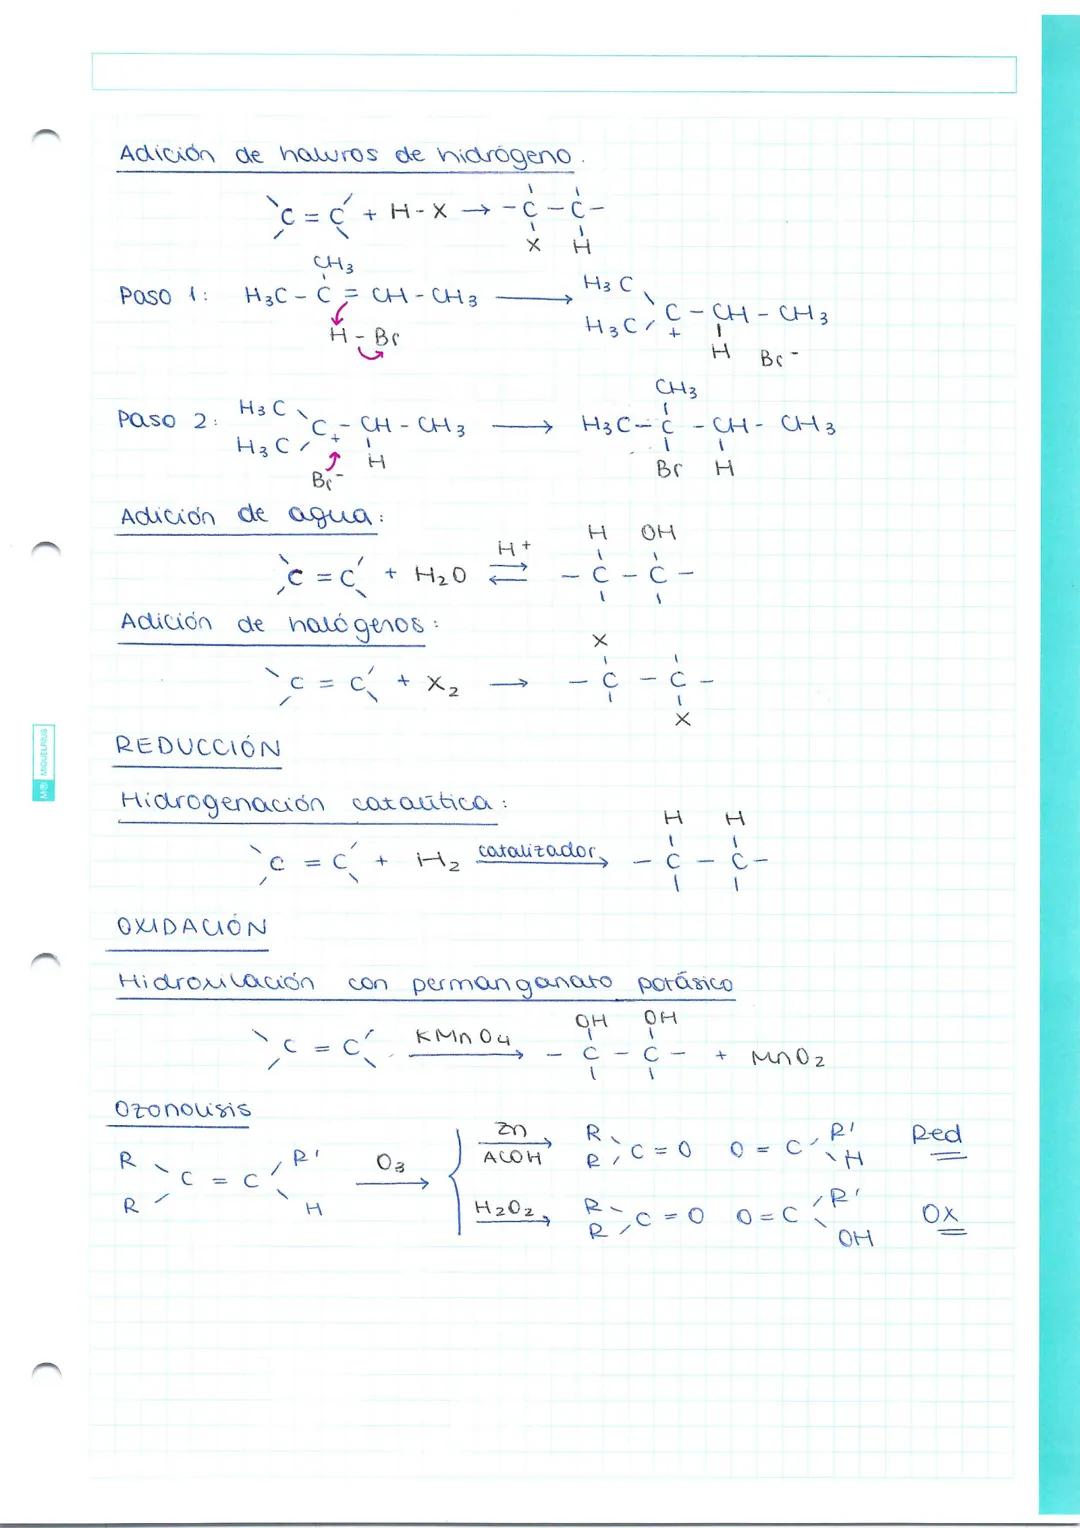 Adición de haluros de hidrógeno.
C = C + H - X → - C - C -
X H
CH3
Paso 1: H3C - C = CH - CH3 → H3C H3C C+ - CH - CH3
H - Br
H Br-
CH3
Paso 2: H3C H3C C+ - CH - CH3 → H3C - C - CH - CH3
Br- H Br H
Adición de agua:
H OH
C = C + H2O ⇌ H+ - C - C -
Adición de halógenos:
X
C = C + X2 → - C - C -
X
REDUCCIÓN
Hidrogenación catalítica:
H H
C = C + H2 catalizador → - C - C -
OXIDACIÓN
Hidroxilación con permanganato potásico
OH OH
C = C KMnO4 → - C - C - + MnO2
Ozonolisis
R R C = C R' H O3 →
Zn AcOH → R R C = O O = C R' H Red
H2O2 → R R C = O O = C R' OH Ox
M® MIQUELRIUS